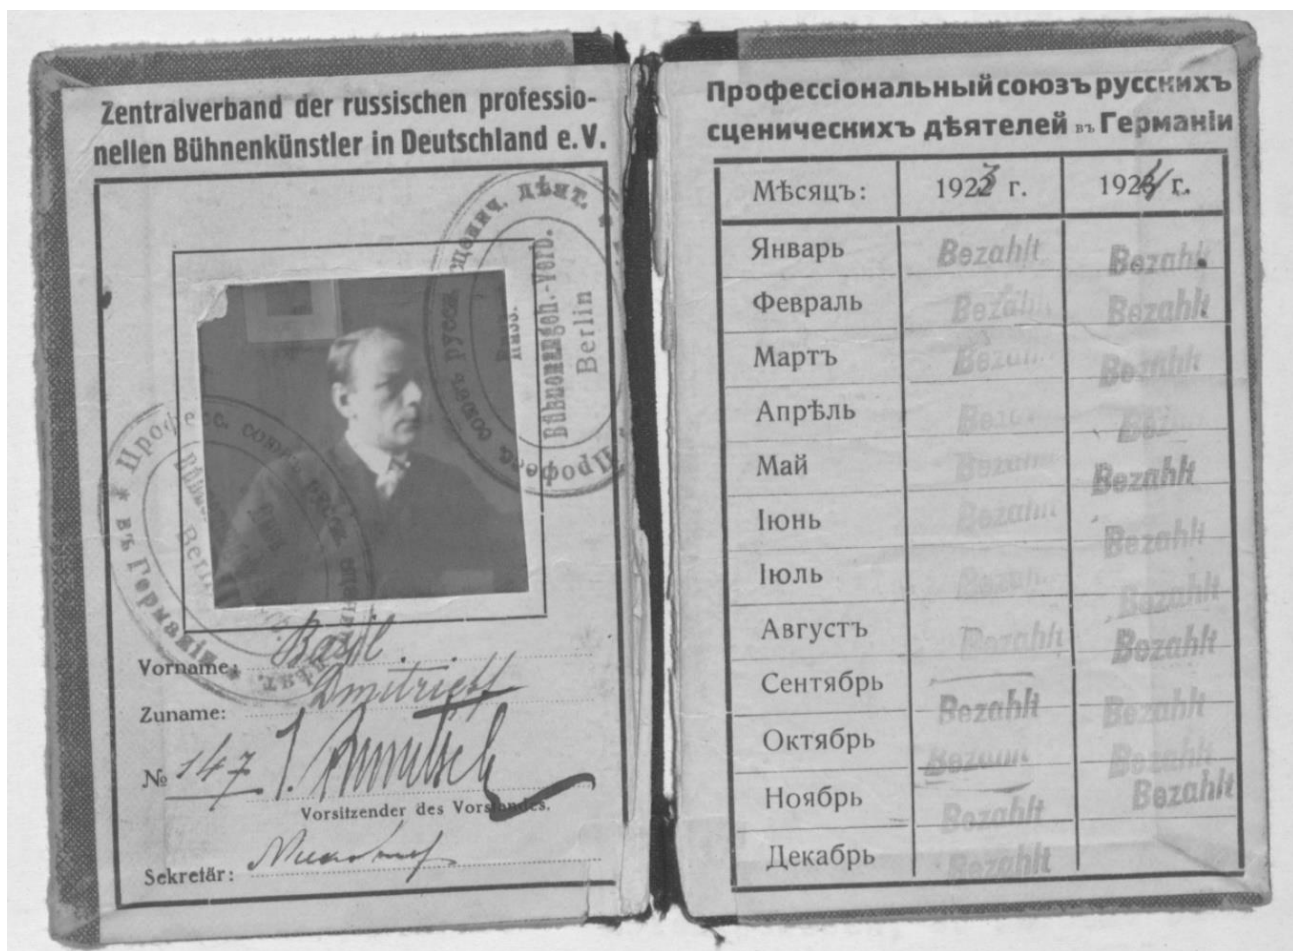 Zentralverband der russischen professio-
nellen Bühnenkünstler in Deutschland e. V.
Професс. союзъ русск. сценич. дѣят.
Bühnenangeh.-Verb.
Berlin
Професс. союзъ русск. сценич. дѣят. въ Германіи
Berlin
Vorname: Basil
Zuname: Dmitrieff
№ 147
Vorsitzender des Vorstandes.
Sekretär:
Профессіональный союзъ русскихъ
сценическихъ дѣятелей въ Германіи
Мѣсяцъ: 1923 г. 1924 г.
Январь Bezahlt Bezahlt
Февраль Bezahlt Bezahlt
Мартъ Bezahlt Bezahlt
Апрѣль Bezahlt Bezahlt
Май Bezahlt Bezahlt
Іюнь Bezahlt Bezahlt
Іюль Bezahlt Bezahlt
Августъ Bezahlt Bezahlt
Сентябрь Bezahlt Bezahlt
Октябрь Bezahlt Bezahlt
Ноябрь Bezahlt Bezahlt
Декабрь Bezahlt